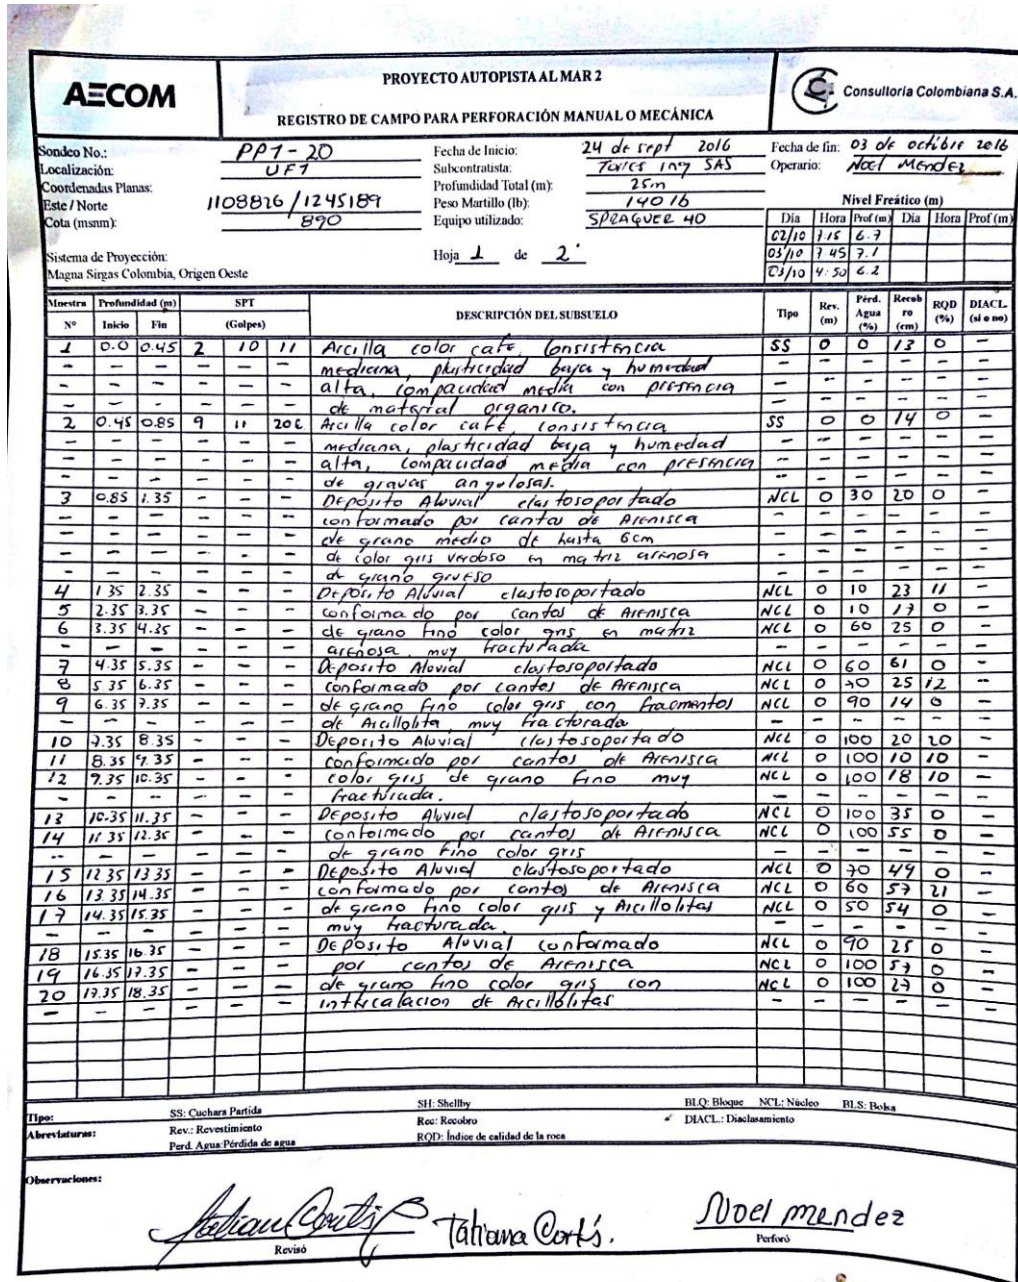 AECOM
PROYECTO AUTOPISTA AL MAR 2
REGISTRO DE CAMPO PARA PERFORACIÓN MANUAL O MECÁNICA
Consultoría Colombiana S.A.
Sondeo No.: PP1-20 Fecha de Inicio: 24 de sept 2016 Fecha de fin: 03 de octubre 2016
Localización: UF1 Subcontratista: Torres ing SAS Operario: Noel Mendez
Coordenadas Planas: Profundidad Total (m): 25m
Este / Norte 1108826 / 1245189 Peso Martillo (lb): 140 lb Nivel Freático (m)
Cota (msnm): 890 Equipo utilizado: SPRAGUER 40 Día Hora Prof (m) Día Hora Prof (m)
02/10 7.15 6.7
Sistema de Proyección: Hoja 1 de 2 03/10 7 45 7.1
Magna Sirgas Colombia, Origen Oeste 03/10 4:50 6.2
Muestra Profundidad (m) SPT DESCRIPCIÓN DEL SUBSUELO Tipo Rev. (m) Pérd. Agua (%) Recob ro (cm) RQD (%) DIACL. (si o no)
Nº Inicio Fin (Golpes)
1 0.0 0.45 2 10 11 Arcilla color cafe, Consistencia SS 0 0 13 0 -
- - - - - - mediana, plasticidad baja y humedad - - - - - -
- - - - - - alta, compacidad media con presencia - - - - - -
- - - - - - de material organico. - - - - - -
2 0.45 0.85 9 11 20E Arcilla color café, consistencia SS 0 0 14 0 -
- - - - - - mediana, plasticidad baja y humedad - - - - - -
- - - - - - alta, compacidad media con presencia - - - - - -
- - - - - - de gravas angulosas. - - - - - -
3 0.85 1.35 - - - Depósito Aluvial clastosoportado NCL 0 30 20 0 -
- - - - - - conformado por cantos de Arenisca - - - - - -
- - - - - - de grano medio de hasta 6cm - - - - - -
- - - - - - de color gris verdoso en matriz arenosa - - - - - -
- - - - - - de grano grueso - - - - - -
4 1 35 2.35 - - - Depósito Aluvial clastosoportado NCL 0 10 23 11 -
5 2.35 3.35 - - - conformado por cantos de Arenisca NCL 0 10 17 0 -
6 3.35 4.35 - - - de grano fino color gris en matriz NCL 0 60 25 0 -
- - - - - - arenosa muy fracturada - - - - - -
7 4.35 5.35 - - - Deposito Aluvial clastosoportado NCL 0 60 61 0 -
8 5.35 6.35 - - - conformado por cantos de Arenisca NCL 0 70 25 12 -
9 6.35 7.35 - - - de grano fino color gris con fracmentos NCL 0 90 14 0 -
- - - - - - de Arcillolita muy fracturada - - - - - -
10 7.35 8.35 - - - Deposito Aluvial clastosoportado NCL 0 100 20 20 -
11 8.35 9.35 - - - conformado por cantos de Arenisca NCL 0 100 10 10 -
12 9.35 10.35 - - - color gris de grano fino muy NCL 0 100 18 10 -
- - - - - - fracturada. - - - - - -
13 10.35 11.35 - - - Deposito Aluvial clastosoportado NCL 0 100 35 0 -
14 11.35 12.35 - - - conformado por cantos de Arenisca NCL 0 100 55 0 -
- - - - - - de grano fino color gris - - - - - -
15 12 35 13 35 - - - Deposito Aluvial clastosoportado NCL 0 70 49 0 -
16 13.35 14.35 - - - conformado por cantos de Arenisca NCL 0 60 57 21 -
17 14.35 15.35 - - - de grano fino color gris y Arcillolitas NCL 0 50 54 0 -
- - - - - - muy fracturada. - - - - - -
18 15.35 16.35 - - - Deposito Aluvial conformado NCL 0 90 25 0 -
19 16.35 17.35 - - - por cantos de Arenisca NCL 0 100 57 0 -
20 17.35 18.35 - - - de grano fino color gris con NCL 0 100 27 0 -
- - - - - - intercalacion de Arcillolitas - - - - - -
Tipo: SS: Cuchara Partida SH: Shellby BLQ: Bloque NCL: Núcleo BLS: Bolsa
Abreviaturas: Rev.: Revestimiento Rec: Recobro DIACL.: Diaclasamiento
Perd. Agua:Pérdida de agua RQD: Índice de calidad de la roca
Observaciones:
Tatiana Cortés. Noel mendez
Revisó Perforó